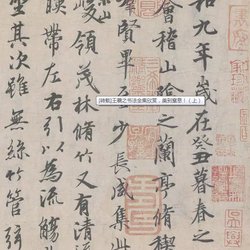 和九年歲在癸丑暮春之
會稽山陰之蘭亭脩禊
羣賢畢至少長咸集此
峻領茂林脩竹又有清流
暎帶左右引以為流觴
坐其次雖無絲竹管弦
[转载]王羲之书法全集欣赏，美到窒息！（上）